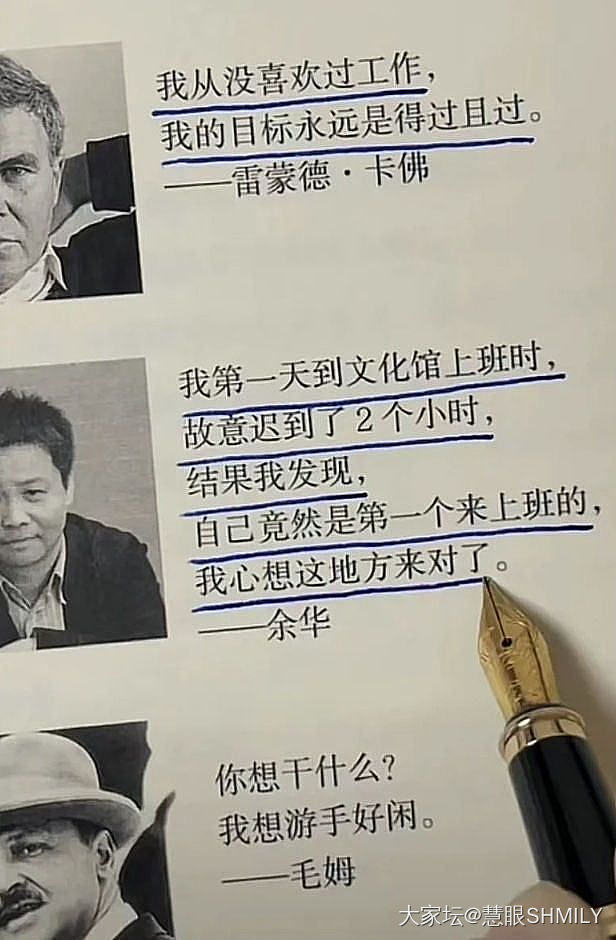 我从没喜欢过工作，
我的目标永远是得过且过。
——雷蒙德·卡佛
我第一天到文化馆上班时，
故意迟到了2个小时，
结果我发现，
自己竟然是第一个来上班的，
我心想这地方来对了。
——余华
你想干什么？
我想游手好闲。
——毛姆
大家坛@慧眼SHMILY